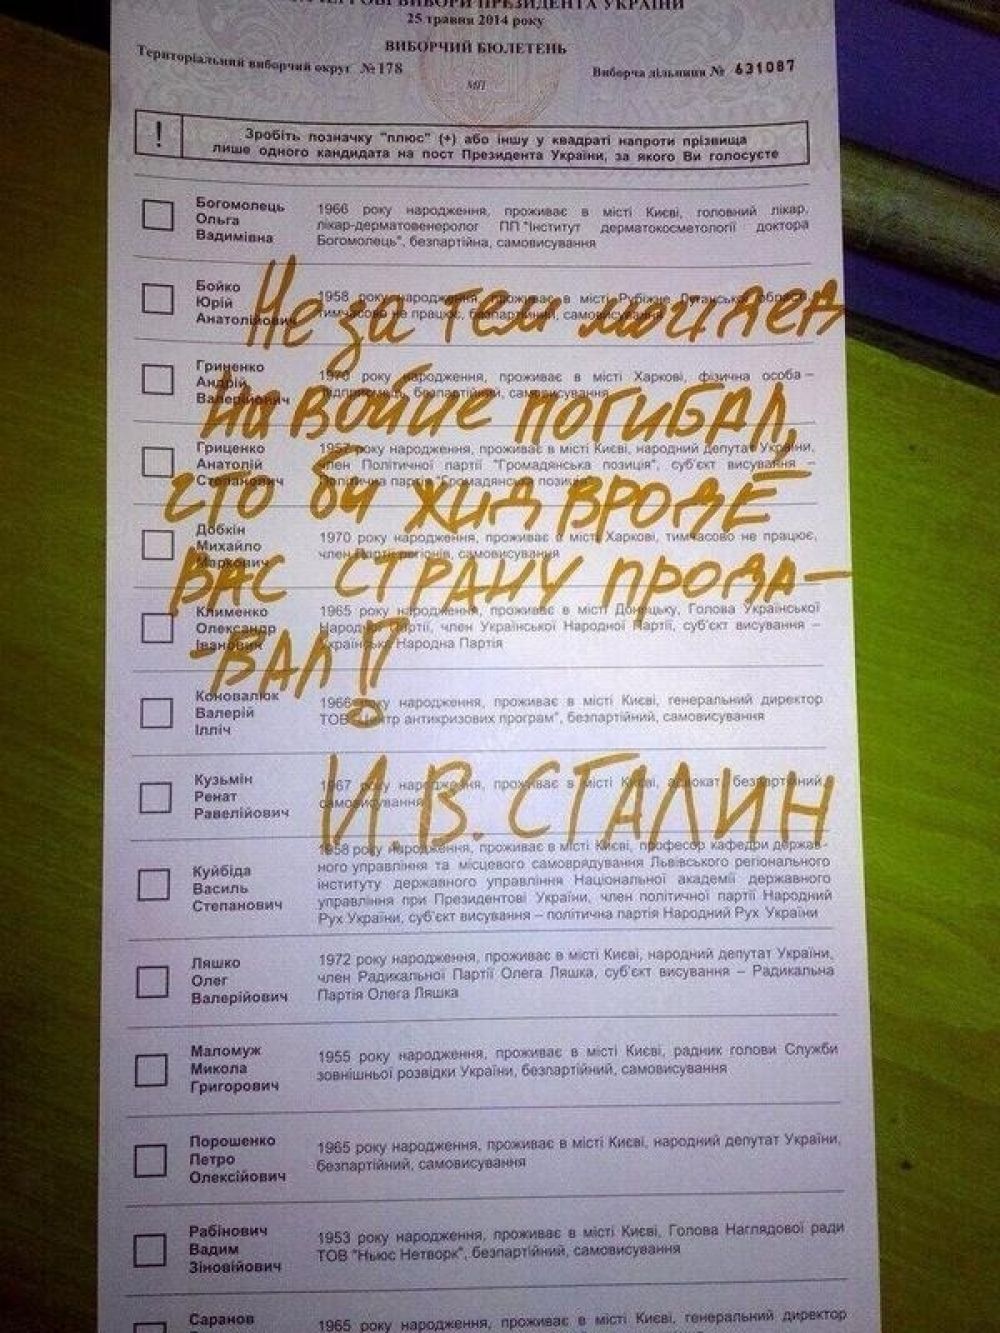 ВИБОРИ ПРЕЗИДЕНТА УКРАЇНИ
25 травня 2014 року
ВИБОРЧИЙ БЮЛЕТЕНЬ
Територіальний виборчий округ №178
Виборча дільниця № 631087
МП
! Зробіть позначку "плюс" (+) або іншу у квадраті напроти прізвища
лише одного кандидата на пост Президента України, за якого Ви голосуєте
Богомолець
Ольга
Вадимівна
1966 року народження, проживає в місті Києві, головний лікар,
лікар-дерматовенеролог ПП "Інститут дерматокосметології доктора
Богомолець", безпартійна, самовисування
Бойко
Юрій
Анатолійович
1958 року народження, проживає в місті Рубіжне Луганської області,
тимчасово не працює, безпартійний, самовисування
Не за тем мой дед
Гриненко
Андрій
Валерійович
1970 року народження, проживає в місті Харкові, фізична особа –
підприємець, безпартійний, самовисування
на войне погибал,
Гриценко
Анатолій
Степанович
1957 року народження, проживає в місті Києві, народний депутат України,
член Політичної партії "Громадянська позиція", суб'єкт висування –
Політична партія "Громадянська позиція"
что бы жид вроде
Добкін
Михайло
Маркович
1970 року народження, проживає в місті Харкові, тимчасово не працює,
член Партії регіонів, самовисування
вас страну прода-
Клименко
Олександр
Іванович
1965 року народження, проживає в місті Донецьку, Голова Української
Народної Партії, член Української Народної Партії, суб'єкт висування –
Українська Народна Партія
-вал!?
Коновалюк
Валерій
Ілліч
1966 року народження, проживає в місті Києві, генеральний директор
ТОВ "Центр антикризових програм", безпартійний, самовисування
Кузьмін
Ренат
Равелійович
1967 року народження, проживає в місті Києві, адвокат, безпартійний,
самовисування
И.В. Сталин
Куйбіда
Василь
Степанович
1958 року народження, проживає в місті Києві, професор кафедри держав-
ного управління та місцевого самоврядування Львівського регіонального
інституту державного управління Національної академії державного
управління при Президентові України, член політичної партії Народний
Рух України, суб'єкт висування – політична партія Народний Рух України
Ляшко
Олег
Валерійович
1972 року народження, проживає в місті Києві, народний депутат України,
член Радикальної Партії Олега Ляшка, суб'єкт висування – Радикальна
Партія Олега Ляшка
Маломуж
Микола
Григорович
1955 року народження, проживає в місті Києві, радник голови Служби
зовнішньої розвідки України, безпартійний, самовисування
Порошенко
Петро
Олексійович
1965 року народження, проживає в місті Києві, народний депутат України,
безпартійний, самовисування
Рабінович
Вадим
Зіновійович
1953 року народження, проживає в місті Києві, Голова Наглядової ради
ТОВ "Ньюс Нетворк", безпартійний, самовисування
Саранов
1965 року народження, проживає в місті Києві, генеральний директор